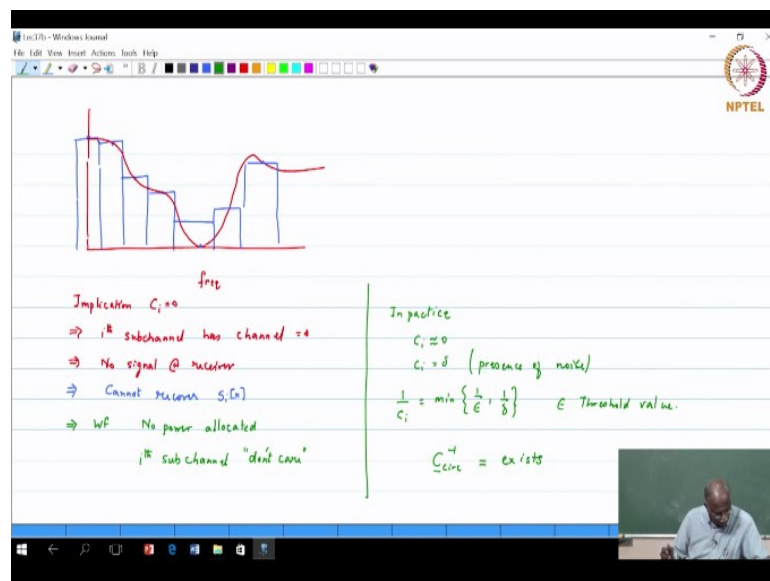 Lec37b - Windows Journal
File Edit View Insert Actions Tools Help
B I
NPTEL
freq
Implication Ci = 0
⇒ ith subchannel has channel = 0
⇒ No signal @ receiver
⇒ Cannot recover Si[n]
⇒ WF No power allocated
ith sub channel "don't care"
In pactice
Ci ≈ 0
Ci = δ (presence of noise)
1/Ci = min { 1/ϵ , 1/δ } ϵ Threshold value.
C circ ⁻¹ = exists